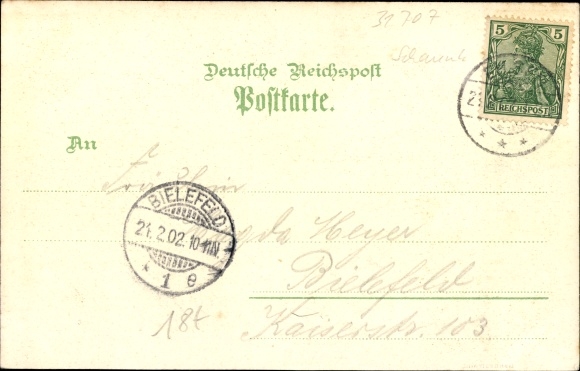 31707
Deutsche Reichspost
Postkarte.
5 5
REICHSPOST
An
Fräulein
BIELEFELD
21.2.02.10-11N.
* 1 e
Magda Meyer
Bielefeld
Kaiserstr. 103